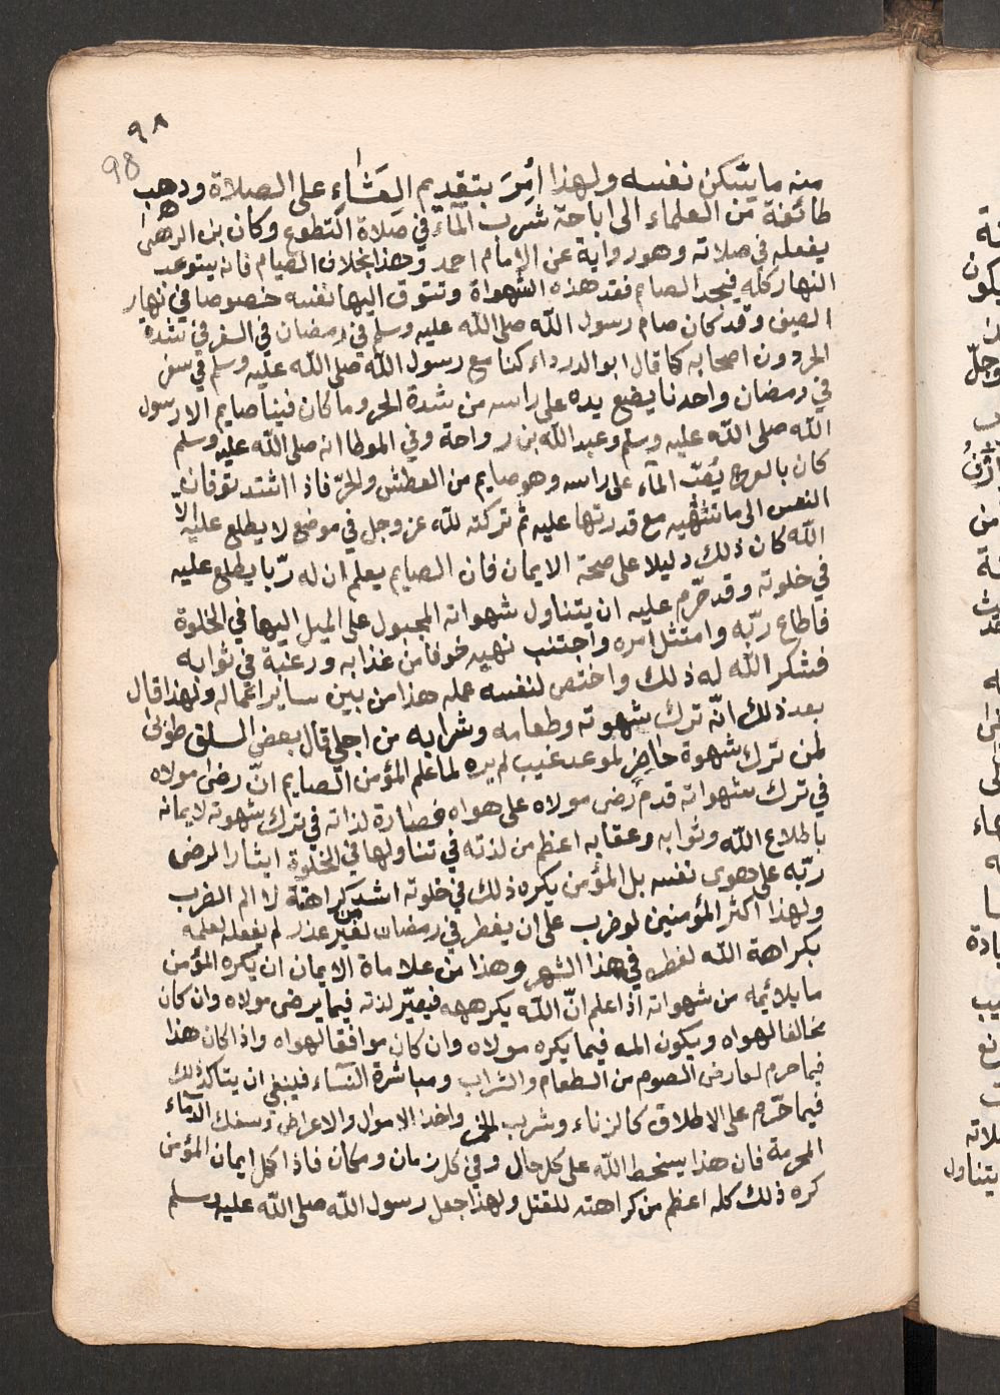 ٩٨
98
منه ما يسكن نفسه ولهذا أُمِرَ بتقديم العَشَاءِ على الصلاة وذهب
طائفة من العلماء الى اباحة شرب المآء في صلاة التطوع وكان بن الزهرا
يفعله في صلاته وهو رواية عن الامام احمد وهذا بخلاف الصيام فانه يستوعب
النهار كله فيجد الصايم فقد هذه الشهواة وتتوق اليها نفسه خصوصا في نهار
الصيف وقد كان صام رسول الله صلى الله عليه وسلم في رمضان في السفر في شدة
الحر دون اصحابه كما قال ابو الدرداء كنا مع رسول الله صلى الله عليه وسلم في سفر
في رمضان واحدنا يضع يده على راسه من شدة الحر وما كان فينا صايم الا رسول
الله صلى الله عليه وسلم وعبد الله بن رواحة وفي الموطا انه صلى الله عليه وسلم
كان بالعرج يُصَبّ المآء على راسه وهو صايم من العطش والحرّ فاذا اشتد توقان
النفس الى ما تشتهيه مع قدرتها عليه ثم تركته للّه عز وجل في موضع لا يطلع عليه الاّ
الله كان ذلك دليلا على صحة الايمان فان الصايم يعلم ان له ربّا يطلع عليه
في خلوته وقد حرّم عليه ان يتناول شهواته المجبول على الميل اليها في الخلوة
فاطاع ربّه وامتثل امره واجتنب نهيه خوفا من عذابه ورغبة في ثوابه
فشكر الله له ذلك واختص لنفسه عمله هذا من بين ساير اعماله ولهذا قال
بعد ذلك انّه ترك شهوته وطعامه وشرابه من اجلي قال بعض السلف طوبى
لمن ترك شهوة حاضرٍ لموعد غيب لم يره لما علم المؤمن الصايم انّ رضى مولاه
في ترك شهواته قدم رضى مولاه على هواه فصارة لذاته في ترك شهوته لايمانه
باطلاع الله وثوابه وعقابه اعظم من لذته في تناولها في الخلوة ايثارا لرضى
ربّه على هوى نفسه بل المؤمن يكره ذلك في خلوته اشد كراهتة لا الم الضرب
ولهذا اكثر المؤمنين لو ضرب على ان يفطر في رمضان لغير من عذر لم يفعله لعلمه
بكراهة الله لفطره في هذا الشهر وهذا من علاماة الايمان ان يكره المؤمن
ما يلائمه من شهواته اذا علم انّ الله يكرهه فيصيّر لذته فيما يرضى مولاه وان كان
مخالفا لهواه ويكون المه فيما يكره مولاه وان كان موافقا لهواه واذا كان هذا
فيما حرم لعارض الصوم من الطعام والشراب ومباشرة النساء فينبغي ان يتاكد ذلك
فيما حرّم على الاطلاق كالزناء وشرب الخمر واخذ الاموال والاعراض وسفك الدماء
المحرمة فان هذا يسخط الله على كل حال وفي كل زمان ومكان فاذا كمل ايمان المؤمن
كره ذلك كله اعظم من كراهته للقتل ولهذا جعل رسول الله صلى الله عليه وسلم